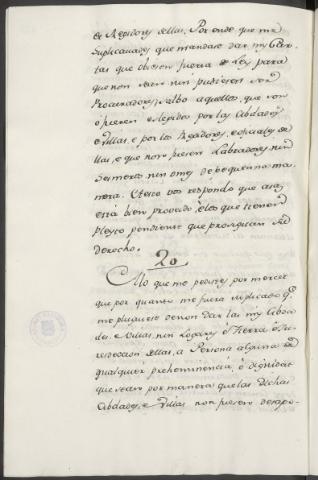 de Regidores dellas, Por ende que me
Suplicavades que mandase dar my Car-
tas que obiesen fuerza de Ley para
que non sean nin pudiesen ser
Procuradores salbo aquellos, que son
o fueren elegidos por las Cibdades
e Villas, e por los Regidores, oficiales de
llas, e que non fuesen Labradores nin
sesmeros nin omes de pequenna ma-
nera. A esto vos respondo que asaz
está bien proveido, e los que tienen
pleyto pendiente que prosigan su
derecho.
20
A lo que me pedistes por merced
que por quanto me fuera suplicado q.
me pluguiese de non dar las my Cibda-
des e Villas, nin Logares, e Tierra, e Ju-
resdeccion dellas, a Persona alguna de
qualquier prehominencia, o dignidat
que sean por manera que las dichas
Cibdades, e Villas non fuesen desapo-